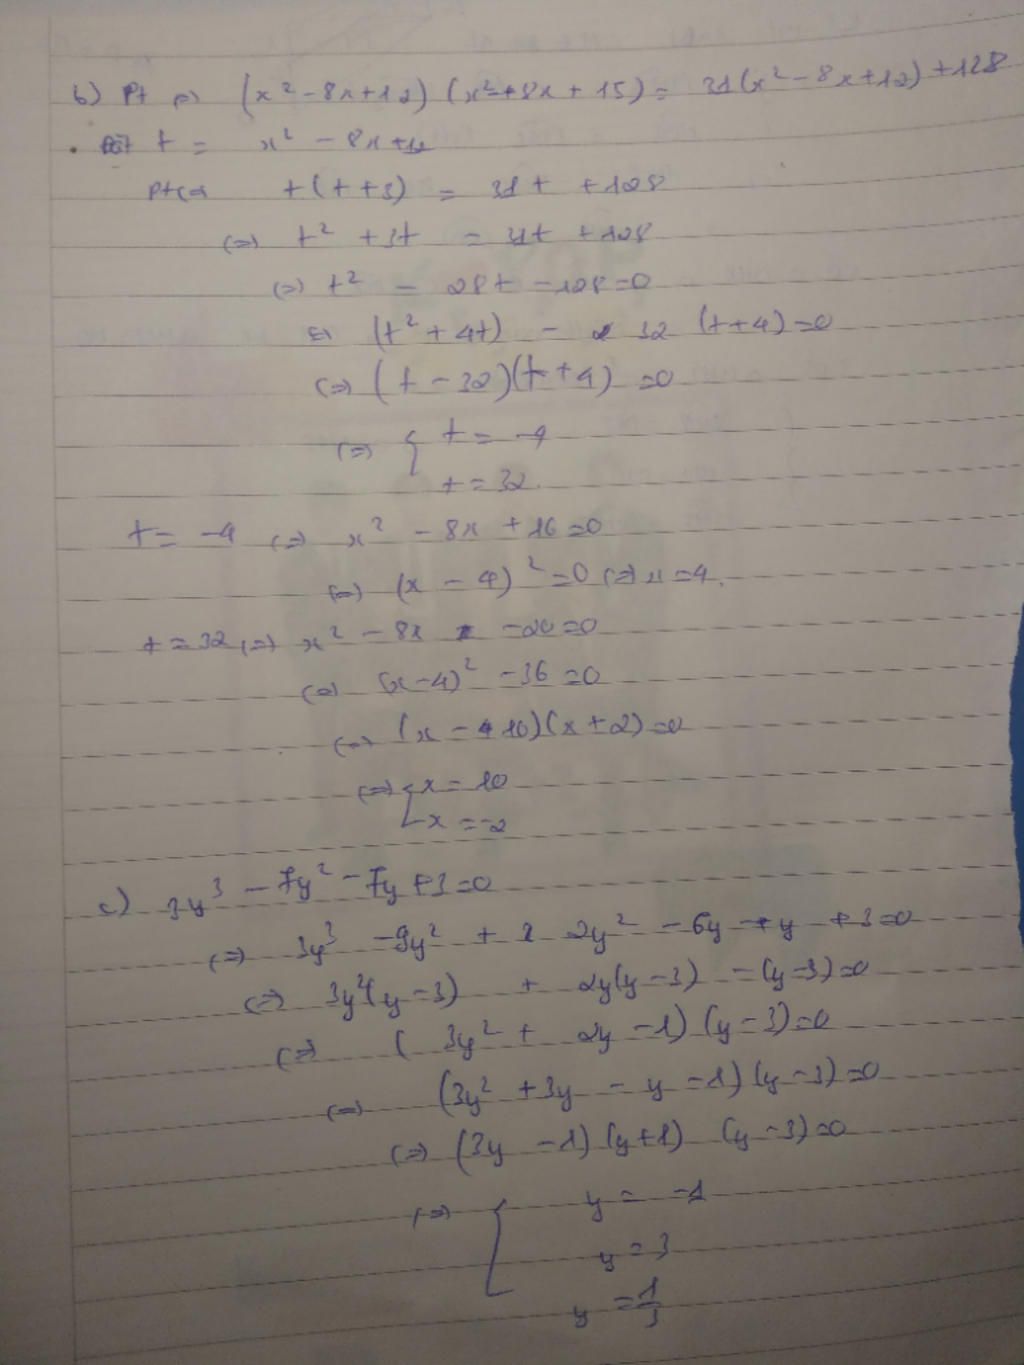 b) Pt (=) (x² - 8x + 12) (x² + 8x + 15) = 31 (x² - 8x + 12) + 128
t = x² - 8x + 12
Pt (=) t (t + 3) = 31t + 128
(=) t² + 3t = 31t + 128
(=) t² - 28t - 128 = 0
(=) (t² + 4t) - 32 (t + 4) = 0
(=) (t - 32) (t + 4) = 0
(=) { t = -4
t = 32
t = -4 (=) x² - 8x + 16 = 0
(=) (x - 4)² = 0 (=) x = 4.
t = 32 (=) x² - 8x - 20 = 0
(=) (x - 4)² - 36 = 0
(=) (x - 10) (x + 2) = 0
(=) [ x = 10
x = -2
c) 3y³ - 7y² - 7y + 3 = 0
(=) 3y³ - 9y² + 2y² - 6y - y + 3 = 0
(=) 3y² (y - 3) + 2y (y - 3) - (y - 3) = 0
(=) ( 3y² + 2y - 1) (y - 3) = 0
(=) (3y² + 3y - y - 1) (y - 3) = 0
(=) (3y - 1) (y + 1) (y - 3) = 0
(=) [ y = -1
y = 3
y = 1/3